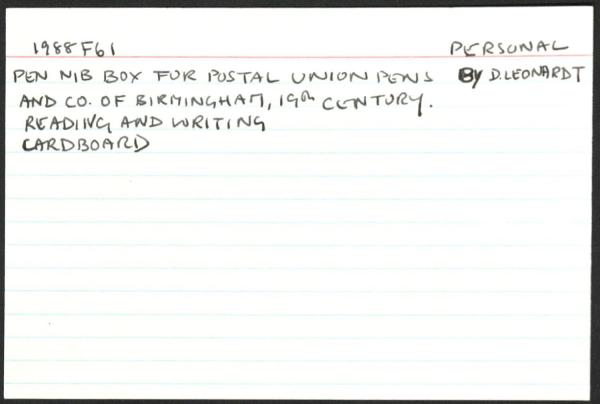 1988F61 PERSONAL
PEN NIB BOX FOR POSTAL UNION PENS BY D. LEONARDT
AND CO. OF BIRMINGHAM, 19th CENTURY.
READING AND WRITING
CARDBOARD